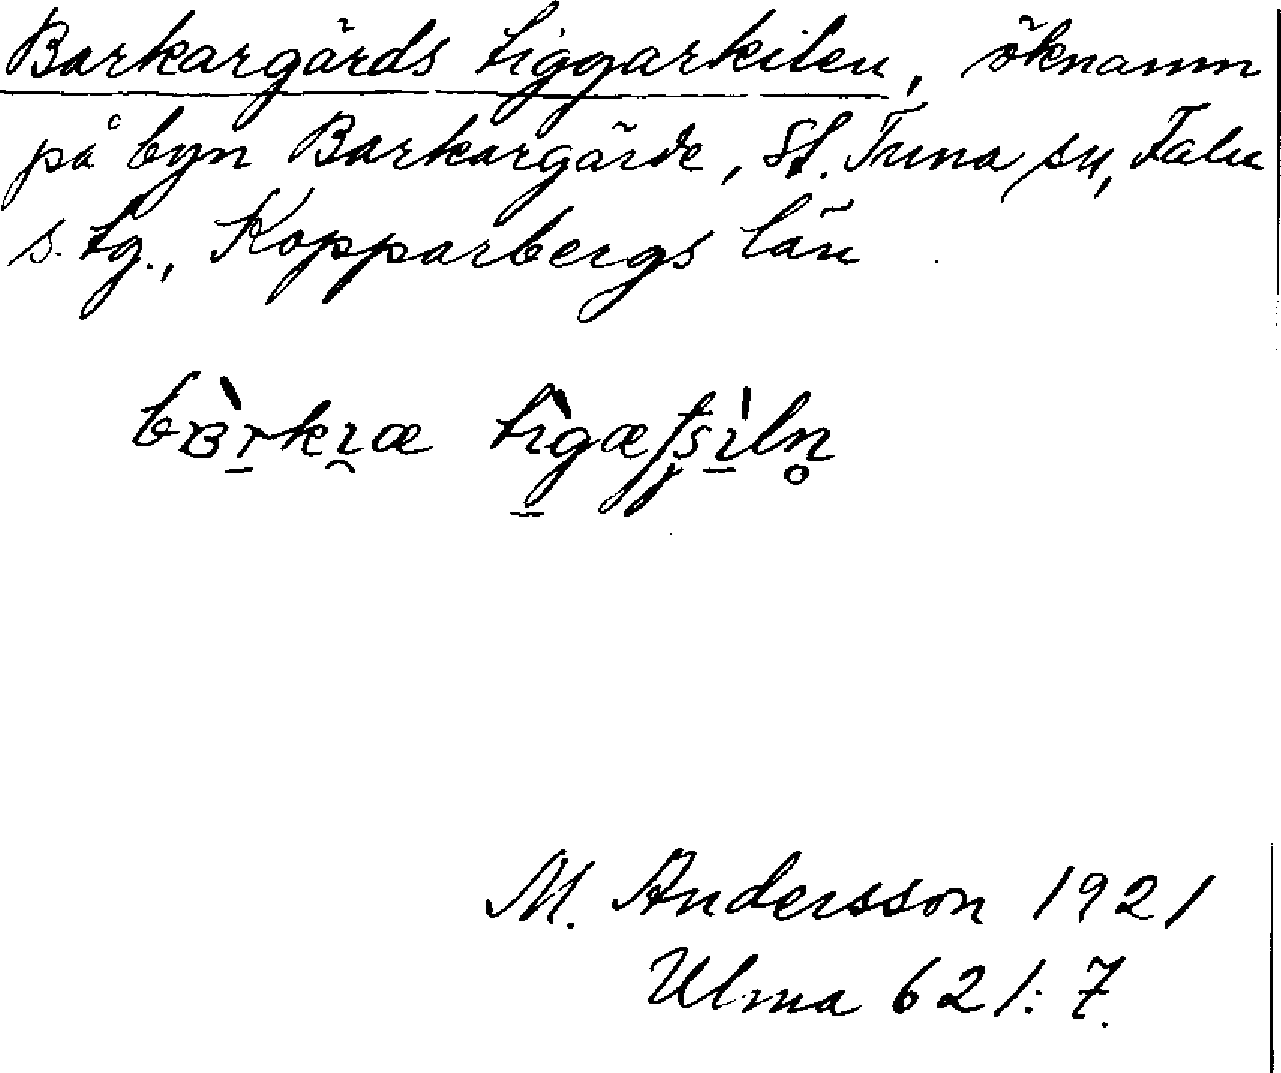 Barkargärds tiggarkilen, öknamn
på byn Barkargärde, St. Tuna sn, Falu
s. tg., Kopparbergs län
M. Andersson 1921
Ulma 621:7.